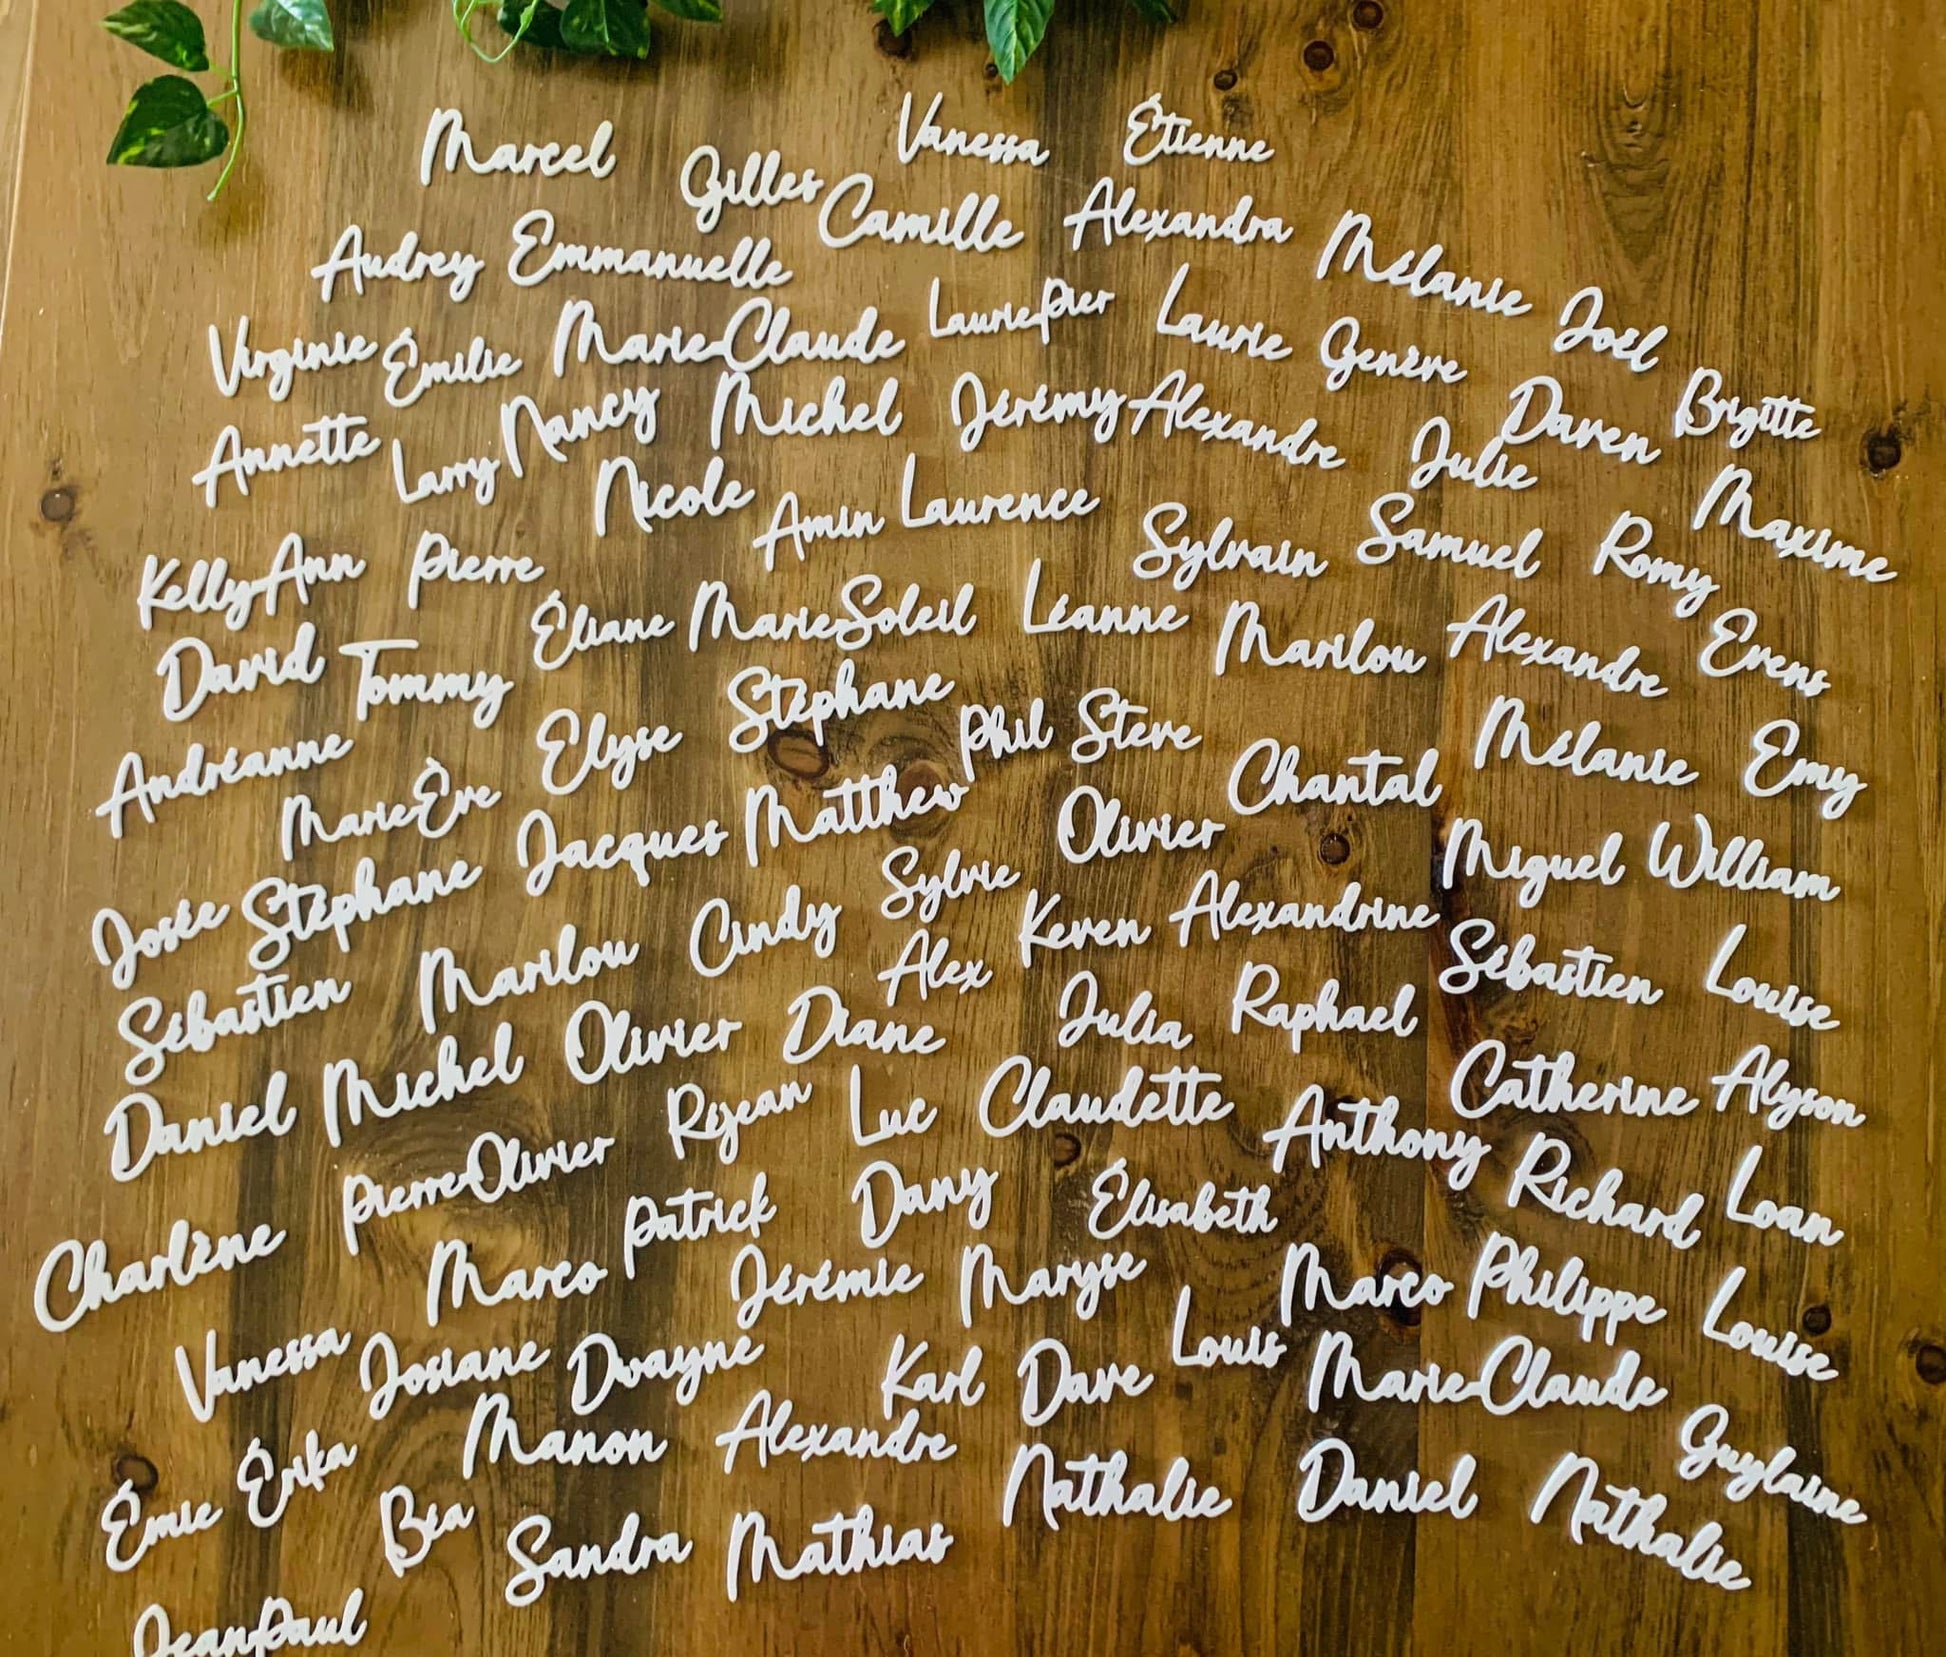 Marcel Gilles Vanessa Étienne
Audrey Emmanuelle Camille Alexandra Mélanie Joël
Virginie Émilie Marie-Claude Laurie-Pier Laurie Genève Daven Brigitte
Annette Larry Nancy Michel Jérémy Alexandre Julie Maxime
Kelly-Ann Pierre Nicole Amin Laurence Sylvain Samuel Romy
David Tommy Éliane Marie-Soleil Léanne Marilou Alexandre Evens
Andréanne Marie-Ève Elyse Stéphane Phil Steve Chantal Mélanie Emy
Josée Stéphane Jacques Matthew Olivier Miguel William
Sébastien Marilou Cindy Sylvie Keven Alexandrine Sébastien Louise
Daniel Michel Olivier Diane Alex Julia Raphael Catherine Alyson
Charlène Pierre-Olivier Réjean Luc Claudette Anthony Richard Loan
Marco Patrick Dany Élisabeth
Vanessa Josiane Dwayne Jérémie Maryse Marco Philippe Louise
Karl Dave Louis Marie-Claude Guylaine
Émie Érika Manon Alexandre Nathalie Daniel Nathalie
Béa Sandra Mathias
Jean-Paul